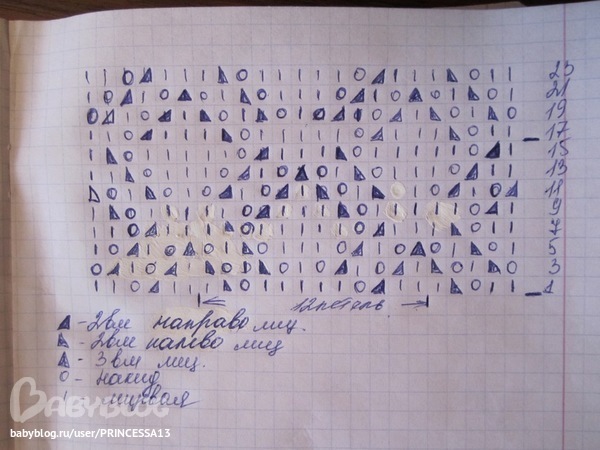 23
21
19
17
15
13
11
9
7
5
3
1
12 петель
- 2вм направо лиц.
- 2вм налево лиц
- 3 вм лиц.
о - накид
| - лицевая
BABYBLOG
babyblog.ru/user/PRINCESSA13